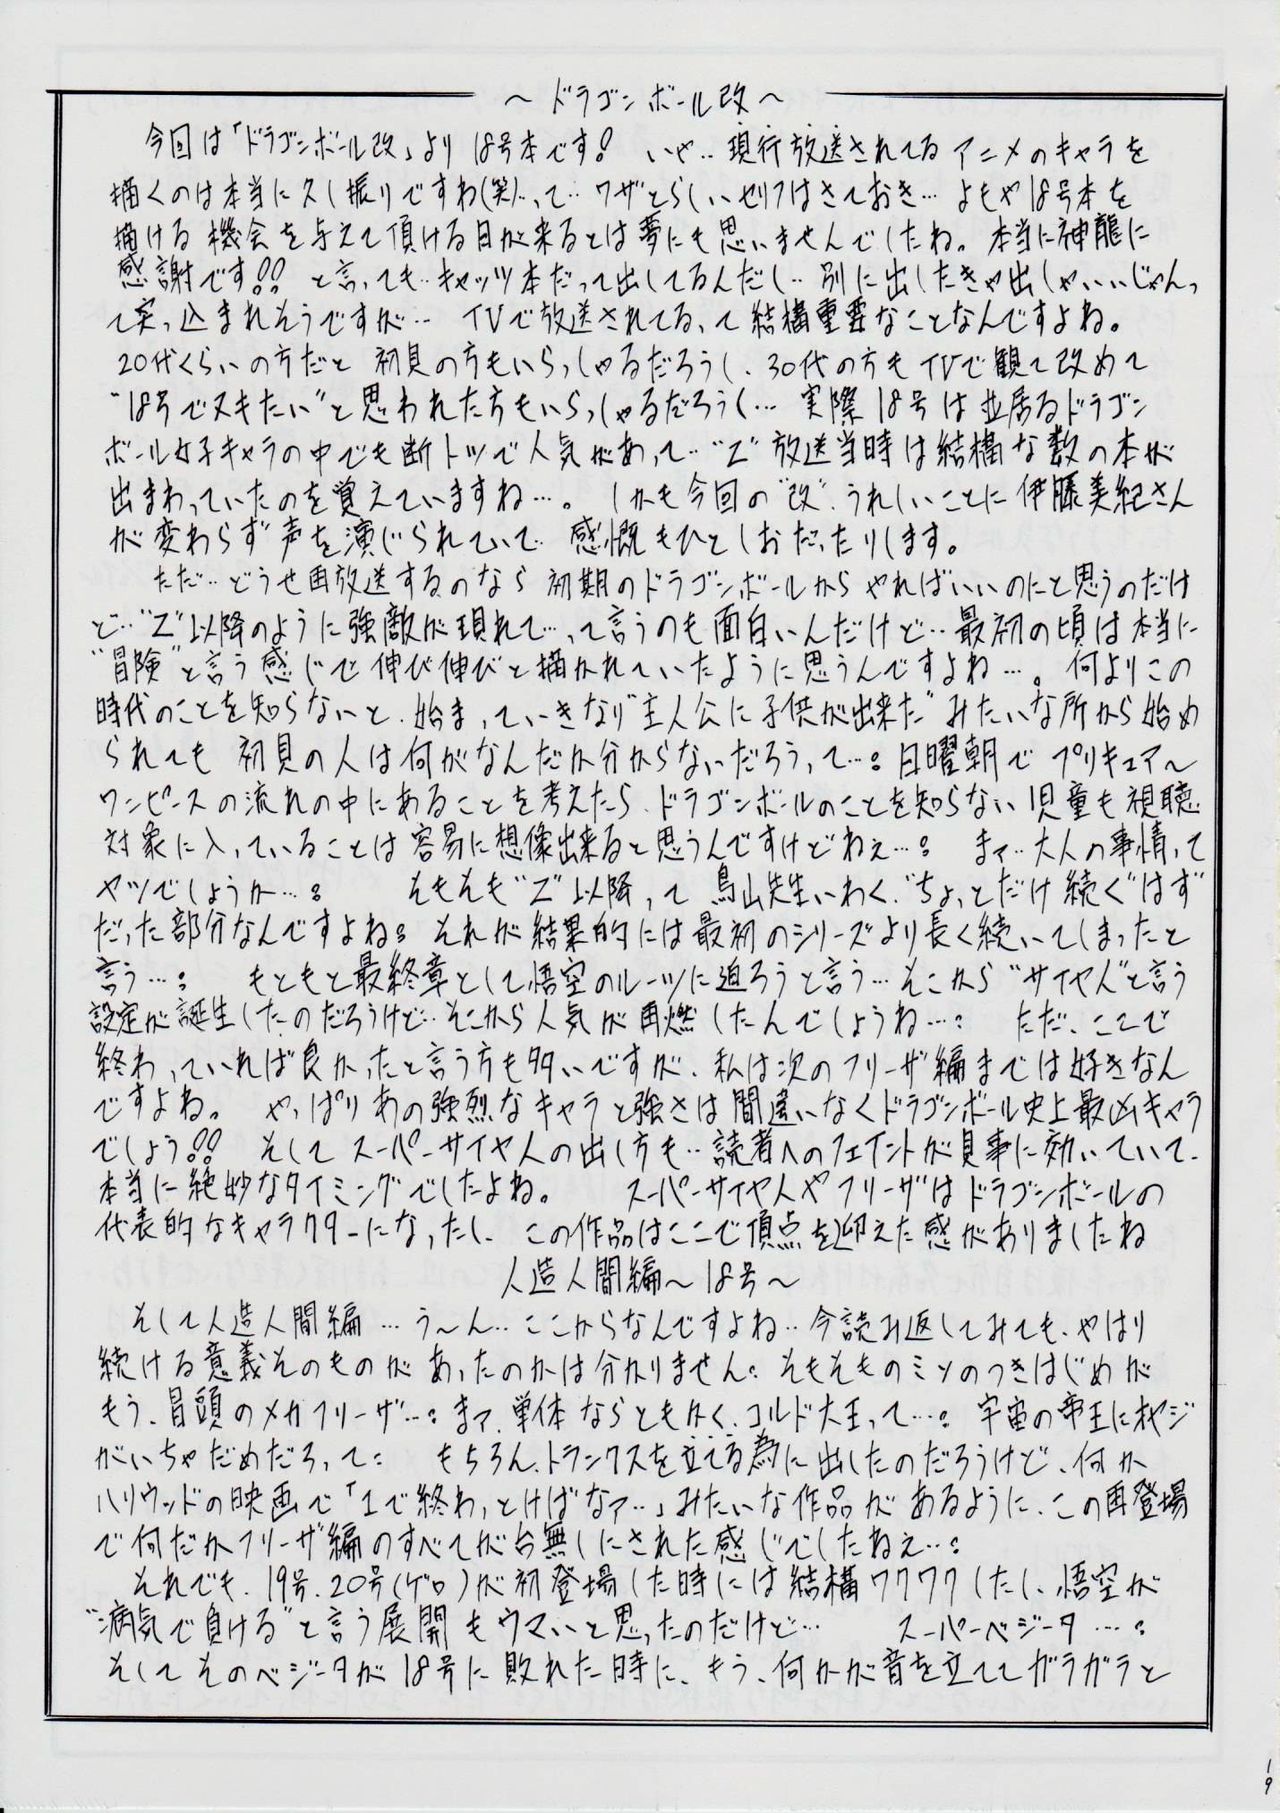 ～ドラゴンボール改～
今回は「ドラゴンボール改」より 18号本です! いや‥現行放送されてるアニメのキャラを
描くのは本当に久し振りですね(笑)‥って‥ワザとらしいセリフはさておき…よもや18号本を
描ける機会を与えて頂ける日が来るとは夢にも思いませんでしたね。本当に神龍に
感謝です!! と言っても‥キャッツ本だって出してるんだし‥別に出したきゃ出しゃいいじゃんっ
て突っ込まれそうですが… TVで放送されてるって結構重要なことなんですよね。
20代くらいの方だと 初見の方もいらっしゃるだろうし、30代の方もTVで観て改めて
“18号でヌキたい”と思われた方もいらっしゃるだろうし… 実際18号は並居るドラゴン
ボール女子キャラの中でも断トツで人気があって‥“Z”放送当時は結構な数の本が
出まわっていたのを覚えていますね…。 しかも今回の“改”、うれしいことに伊藤美紀さん
が変わらず声を演じられていて‥ 感慨もひとしおだったりします。
ただ‥どうせ再放送するのなら 初期のドラゴンボールからやればいいのにと思うのだけ
ど…“Z”以降のように強敵が現れて…って言うのも面白いんだけど‥最初の頃は本当に
“冒険”と言う感じで伸び伸びと描かれていたように思うんですよね…。 何よりこの
時代のことを知らないと、始まっていきなり“主人公に子供が出来た”みたいな所から始め
られても 初見の人は何がなんだか分からないだろうって…: 日曜朝で プリキュア～
ワンピースの流れの中にあることを考えたら、ドラゴンボールのことを知らない児童も視聴
対象に入っていることは容易に想像出来ると思うんですけどねぇ…: まァ‥大人の事情って
ヤツでしょうか…: そもそも“Z”以降って 鳥山先生いわく、“ちょっとだけ続く”はず
だった部分なんですよね: それが結果的には最初のシリーズより長く続いてしまったと
言う…: もともと最終章として悟空のルーツに迫ろうと言う…そこから“サイヤ人”と言う
設定が誕生したのだろうけど‥そこから人気が再燃したんでしょうね…: ただ、ここで
終わっていれば良かったと言う方も多いですが、私は次のフリーザ編までは好きなん
ですよね。 やっぱりあの強烈なキャラと強さは間違いなくドラゴンボール史上最凶キャラ
でしょう!! そしてスーパーサイヤ人の出し方も‥読者へのフェイントが見事に効いていて、
本当に絶妙なタイミングでしたよね。 スーパーサイヤ人やフリーザはドラゴンボールの
代表的なキャラクターになったし、この作品はここで頂点を迎えた感がありましたね
人造人間編～18号～
そして人造人間編…う～ん‥ここからなんですよね‥今読み返してみても、やはり
続ける意義そのものがあったのかは分かりません: そもそものミソのつきはじめが
もう、冒頭のメカフリーザ…: まァ、単体ならともかく、コルド大王って…: 宇宙の帝王にオヤジ
がいちゃだめだろって: もちろん、トランクスを立てる為に出したのだろうけど、何か
ハリウッドの映画で「1で終わっとけばなァ‥」みたいな作品があるように、この再登場
で何だかフリーザ編のすべてが台無しにされた感じでしたねえ…:
それでも、19号、20号(ゲロ)が初登場した時には結構ワクワクしたし、悟空が
“病気で負ける”と言う展開もウマいと思ったのだけど… スーパーベジータ…:
そしてそのベジータが18号に敗れた時に、もう、何かが音を立ててガラガラと
19